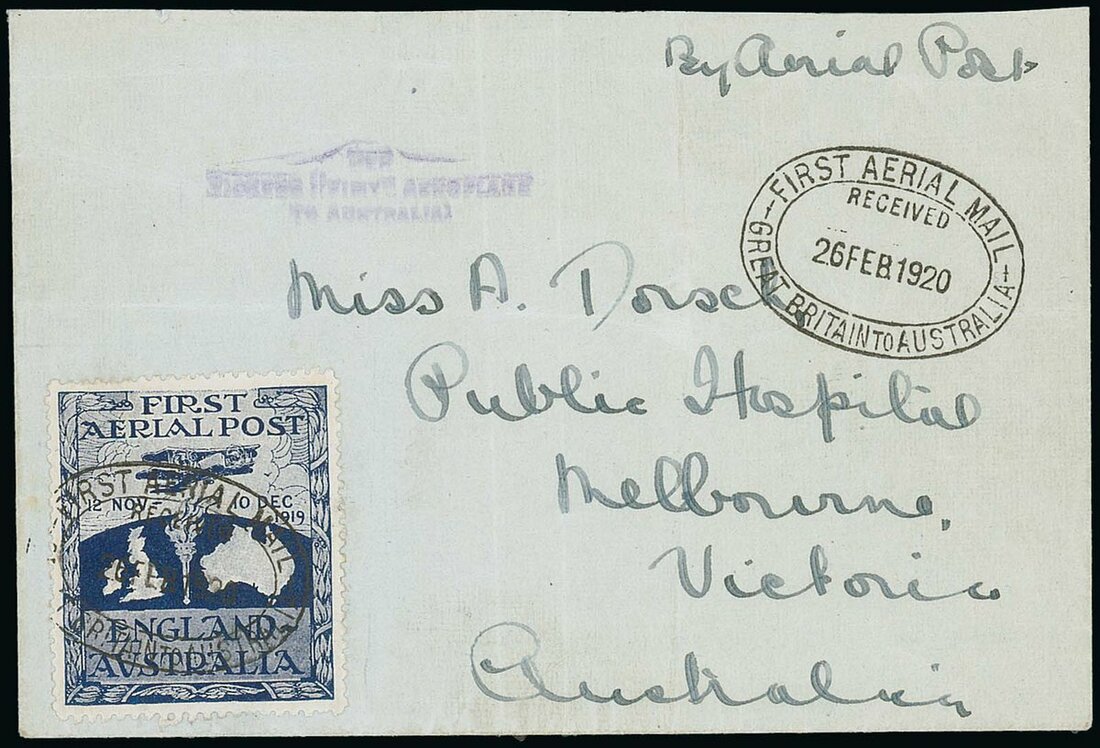 By Aerial Post
FIRST AERIAL MAIL
RECEIVED
26 FEB 1920
GREAT BRITAIN TO AUSTRALIA
PER
VICKERS "VIMY" AEROPLANE
TO AUSTRALIA
Miss A. Dorsch,
Public Hospital
Melbourne,
Victoria
Australia
FIRST
AERIAL POST
12 NOV 10 DEC
1919
ENGLAND
AVSTRALIA
FIRST AERIAL MAIL
RECEIVED
26 FEB 1920
GREAT BRITAIN TO AUSTRALIA